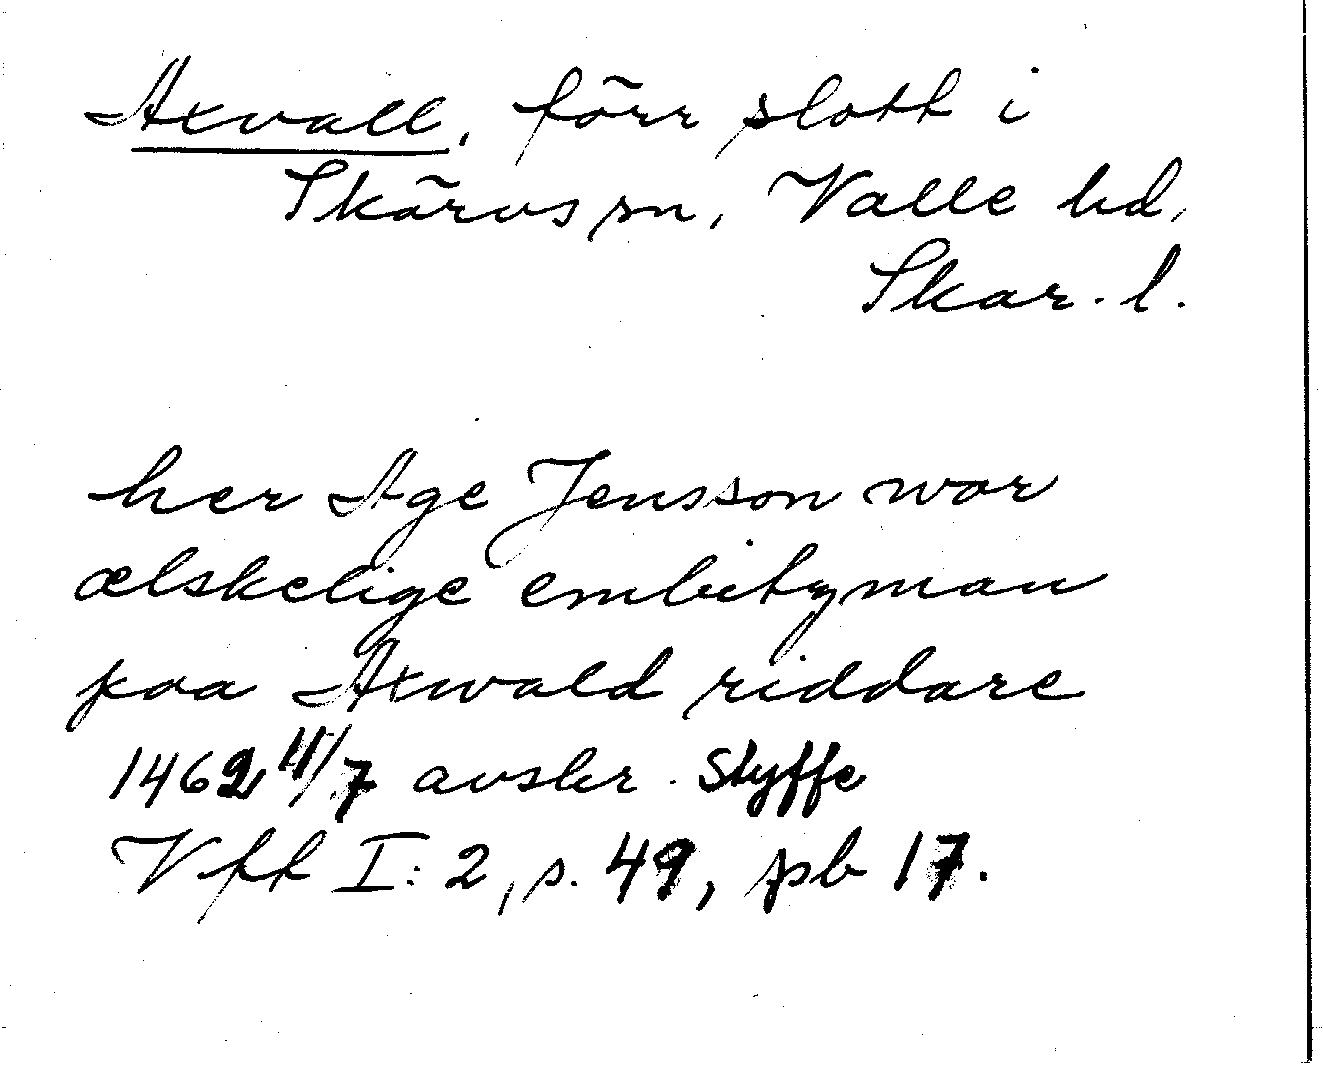 Axvall, förr slott i
Skärvs sn, Valle hd,
Skar. l.
her Age Jensson wor
ælskelige embitzman
paa Axwald riddare
1462 11/7 avskr. Styffe
Vfk I: 2, s. 49, pb 17.